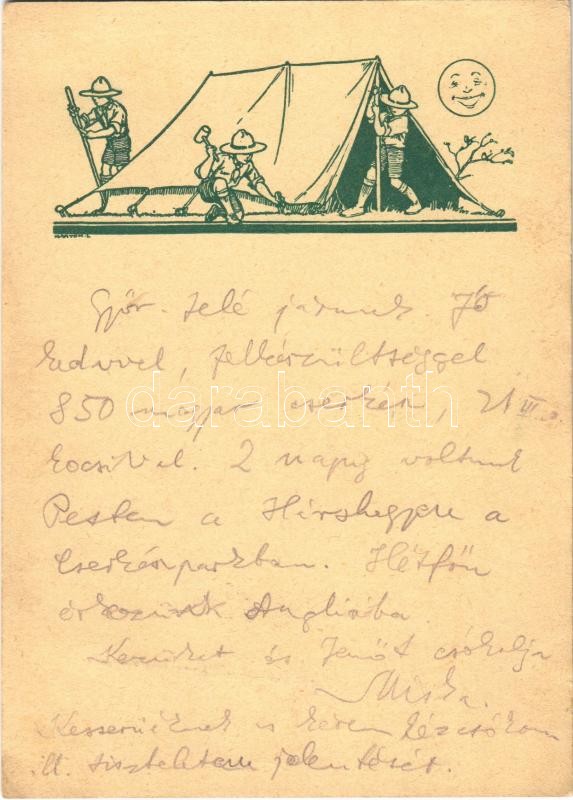 MÁRTON L.
Győr felé járunk. Jó
kedvvel, felkészültséggel
850 magyar cserkész, 21 III. o.
kocsival. 2 napig voltunk
Pesten a Hárshegyen a
Cserkészparkban. Hétfőn
érkezünk Angliába
és Jenőt csókolja
Miska.
is kérem kézcsókom
ill. tiszteletem jelentését.
darabanth